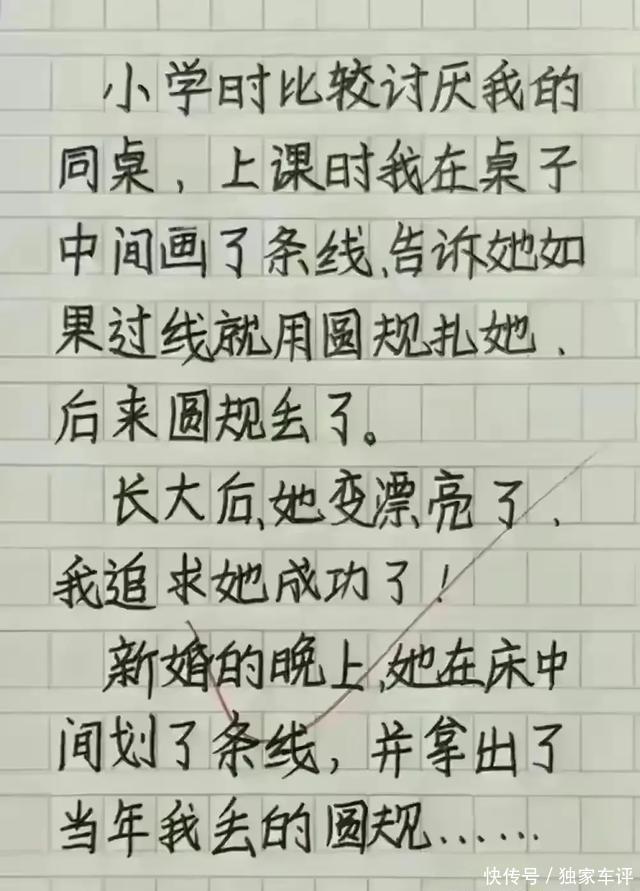 小学时比较讨厌我的
同桌，上课时我在桌子
中间画了条线、告诉她如
果过线就用圆规扎她、
后来圆规丢了。
长大后、她变漂亮了，
我追求她成功了！
新婚的晚上、她在床中
间划了条线，并拿出了
当年我丢的圆规……
快传号／独家车评